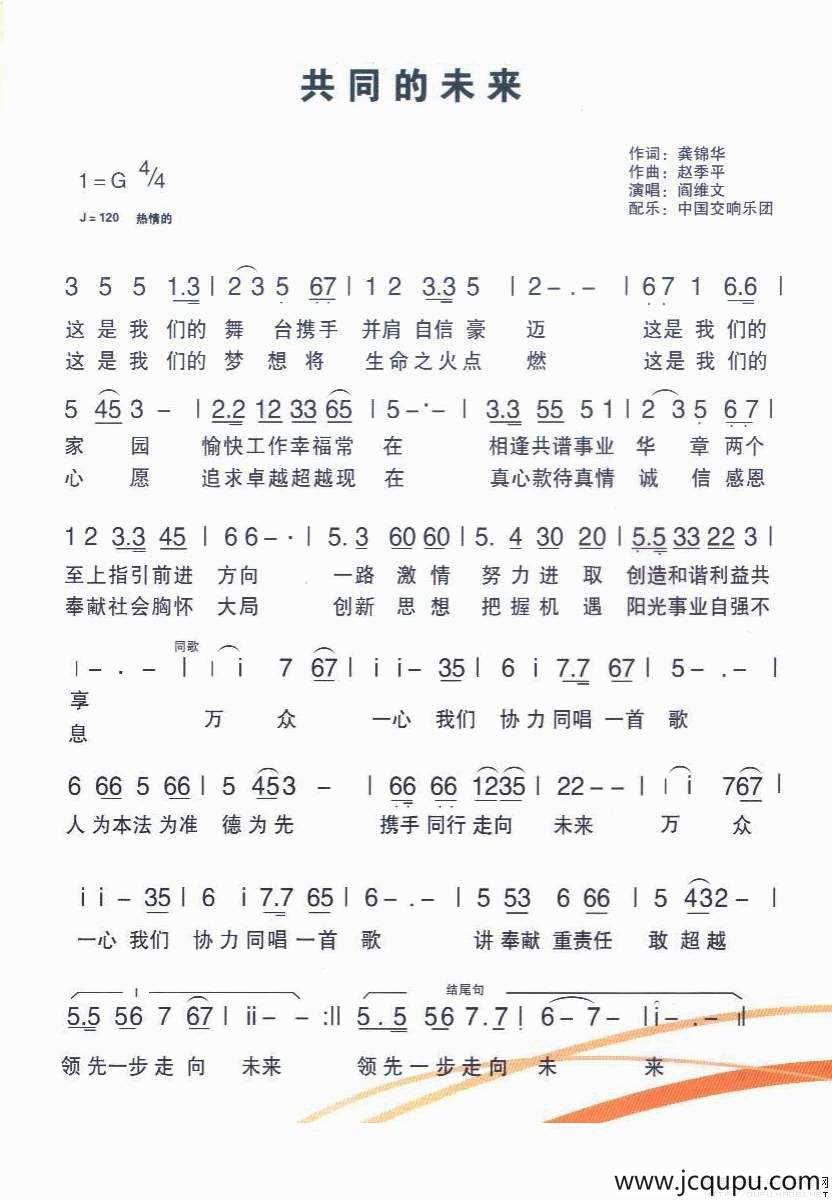 共同的未来
作词：龚锦华
作曲：赵季平
演唱：阎维文
配乐：中国交响乐团
1=G 4/4
J=120 热情的
3 5 5 1.3 | 2 3 5 67 | 1 2 3.3 5 | 2-.- | 67 1 6.6 |
这是我们的舞 台携手 并肩自信豪 迈 这是我们的
这是我们的梦 想将 生命之火点 燃 这是我们的
5 45 3 - | 2.2 12 33 65 | 5-·- | 3.3 55 5 1 | 2 3 5 6 7 |
家 园 愉快工作幸福常 在 相逢共谱事业 华 章 两个
心 愿 追求卓越超越现 在 真心款待真情 诚 信 感恩
1 2 3.3 45 | 6 6-· | 5. 3 60 60 | 5. 4 30 20 | 5.5 33 22 3 |
至上指引前进 方向 一路 激 情 努力进 取 创造和谐利益共
奉献社会胸怀 大局 创新 思 想 把握机 遇 阳光事业自强不
同歌
| - . - | | i 7 67 | i i- 35 | 6 i 7.7 67 | 5-.- |
享
万 众 一心 我们 协力同唱 一首 歌
息
6 66 5 66 | 5 453 - | 66 66 1235 | 22-- | | i 767 |
人为本法为准 德为先 携手同行走向 未来 万 众
i i- 35 | 6 i 7.7 65 | 6-.- | 5 53 6 66 | 5 432- |
一心我们 协力同唱一首 歌 讲奉献 重责任 敢超越
结尾句
5.5 56 7 67 | ii- - :|| 5.5 56 7.7 | 6-7- | i-.- ||
领先一步走向 未来 领先一步走向 未 来
www.jcqupu.com